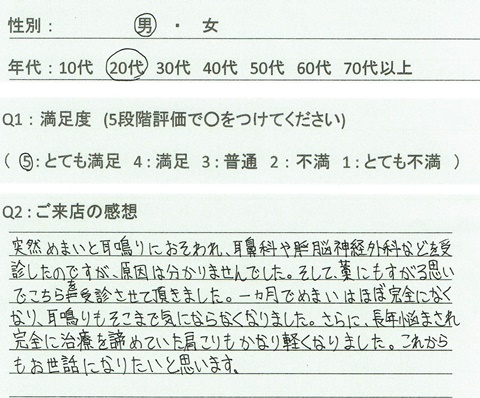 性別： 男 ・ 女
年代：10代 20代 30代 40代 50代 60代 70代以上
Q1：満足度 (5段階評価で〇をつけてください)
( 5：とても満足 4：満足 3：普通 2：不満 1：とても不満 )
Q2：ご来店の感想
突然めまいと耳鳴りにおそわれ、耳鼻科や脳神経外科などを受
診したのですが、原因は分かりませんでした。そして藁にもすがる思い
でこちら受診させて頂きました。一ヵ月でめまいはほぼ完全になく
なり、耳鳴りもそこまで気にならなくなりました。さらに、長年悩まされ
完全に治療を諦めていた肩こりもかなり軽くなりました。これから
もお世話になりたいと思います。